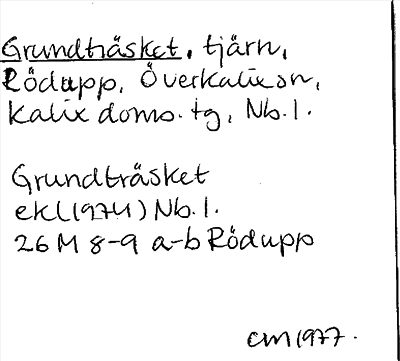 Grundträsket, tjärn,
Rödupp, Överkalix sn,
Kalix doms. tg, Nb. l.
Grundträsket
ekl (1974) Nb. l.
26 M 8-9 a-b Rödupp
CM 1977.